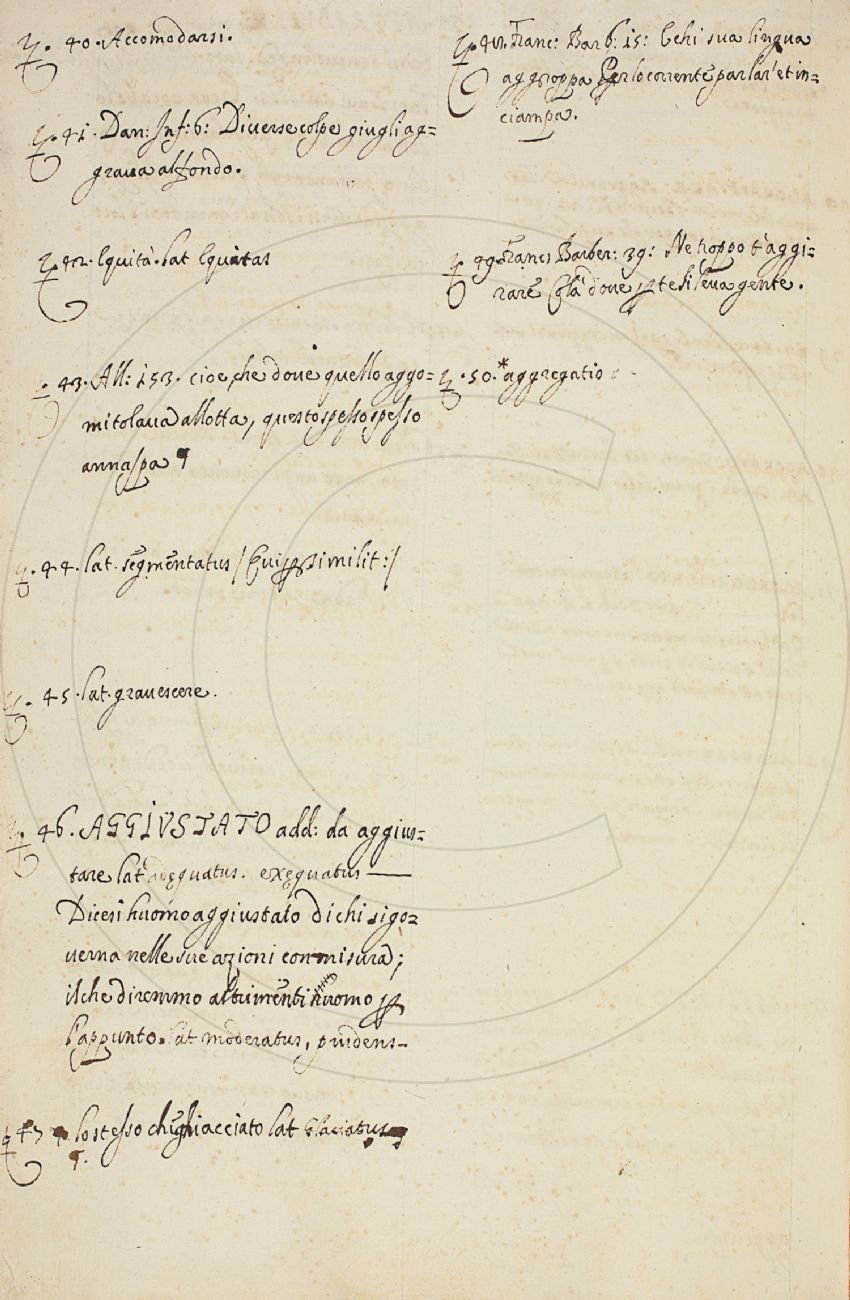 40. Accomodarsi.
41. Dan: Inf: 6: Diuerse colpe giu gli ag=
graua al fondo.
42. Equità. lat Equitas
43. All: 153. cioe che doue quello aggo=
mitolaua allotta, questo spesso spesso
annaspa
44. lat. segmentatus / Qui per similit: /
45. lat. grauescere.
46. AGGIVSTATO add: da aggius=
tare lat adęquatus. exęquatus
Dicesi huomo aggiustato di chi si go=
uerna nelle sue azioni con misura;
il che diremmo altrimenti huomo per
l'appunto. lat moderatus, prudens
47 lo stesso che ghiacciato lat Glaciatus
Franc: Barb: 15: E chi sua lingua
aggroppa Per lo corrente parlar' et in=
ciampa.
49 Franc: Barber: 39: Ne troppo t'aggi=
rare Là doue per te si leua gente.
50. *aggregatio